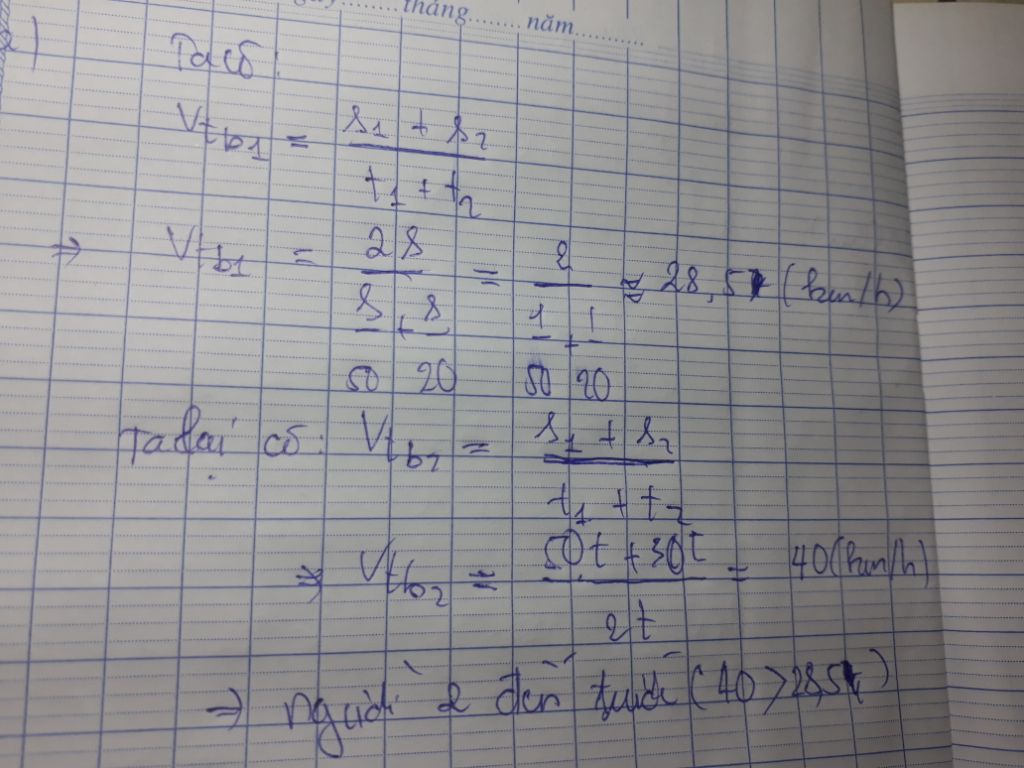 tháng........năm...........
a)
Ta có:
Vtb1 = s1 + s2 / t1 + t2
⇒ Vtb1 = 2s / s/50 + s/20 = 2 / 1/50 + 1/20 ≈ 28,5 (km/h)
Ta lại có: Vtb2 = s1 + s2 / t1 + t2
⇒ Vtb2 = 50t + 30t / 2t = 40 (km/h)
⇒ người 2 đến trước (40 > 28,5)